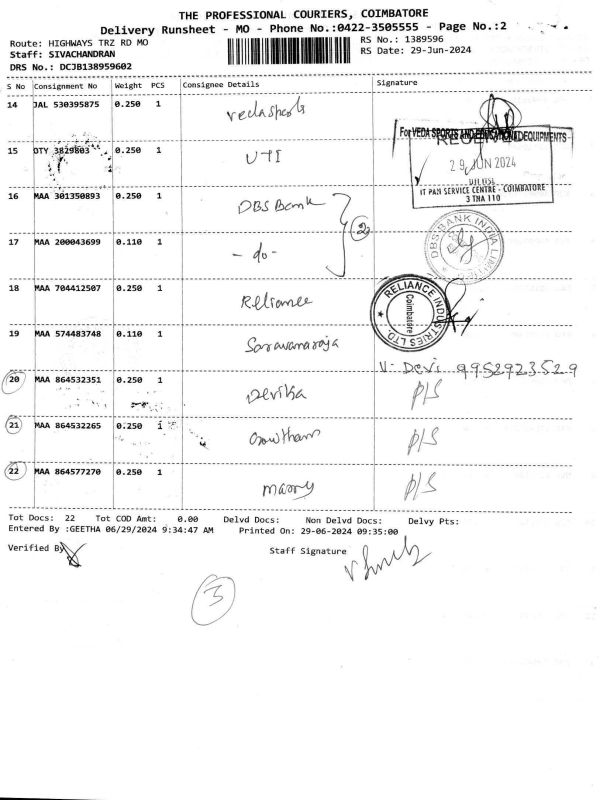 THE PROFESSIONAL COURIERS, COIMBATORE
Delivery Runsheet - MO - Phone No.:0422-3505555 - Page No.:2
Route: HIGHWAYS TRZ RD MO
RS No.: 1389596
Staff: SIVACHANDRAN
RS Date: 29-Jun-2024
DRS No.: DCJB138959602
S No Consignment No Weight PCS Consignee Details Signature
14 JAL 530395875 0.250 1 Vedasports
For VEDA SPORTS AND EDUCATIONAL EQUIPMENTS
15 OTY 3829803 0.250 1 UTI
29 JUN 2024
UTIITSL
IT PAN SERVICE CENTRE - COIMBATORE
3 TNA 110
16 MAA 301350893 0.250 1 DBS Bank
2
DBS BANK INDIA LIMITED
17 MAA 200043699 0.110 1 - do -
18 MAA 704412507 0.250 1 Reliance
RELIANCE INDUSTRIES LTD.
Coimbatore
19 MAA 574483748 0.110 1 Saravanaraja
V. Devi 9952923529
20 MAA 864532351 0.250 1 Devika P/S
21 MAA 864532265 0.250 1 Gowtham P/S
22 MAA 864577270 0.250 1 P/S
Tot Docs: 22 Tot COD Amt: 0.00 Delvd Docs: Non Delvd Docs: Delvy Pts:
Entered By :GEETHA 06/29/2024 9:34:47 AM Printed On: 29-06-2024 09:35:00
Verified By
Staff Signature
3